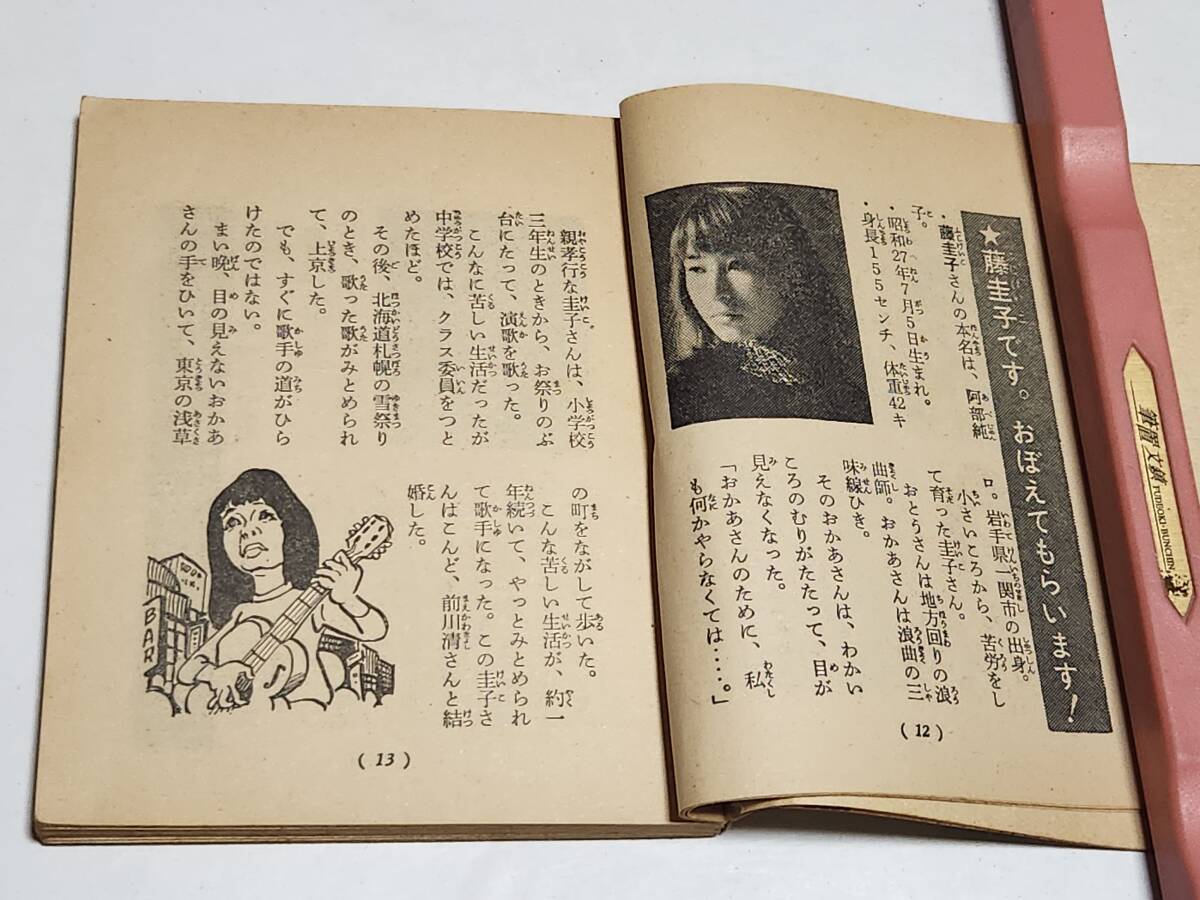 ★藤圭子です。おぼえてもらいます!
・藤圭子さんの本名は、阿部純
子。
・昭和27年7月5日生まれ。
・身長155センチ、体重42キ
ロ。岩手県一関市の出身。
小さいころから、苦労をし
て育った圭子さん。
おとうさんは地方回りの浪
曲師。おかあさんは浪曲の三
味線ひき。
そのおかあさんは、わかい
ころのむりがたたって、目が
見えなくなった。
「おかあさんのために、私
も何かやらなくては‥‥。」
(12)
親孝行な圭子さんは、小学校
三年生のときから、お祭りのぶ
台にたって、演歌を歌った。
こんなに苦しい生活だったが
中学校では、クラス委員をつと
めたほど。
その後、北海道札幌の雪祭り
のとき、歌った歌がみとめられ
て、上京した。
でも、すぐに歌手の道がひら
けたのではない。
まい晩、目の見えないおかあ
さんの手をひいて、東京の浅草
の町をながして歩いた。
こんな苦しい生活が、約一
年続いて、やっとみとめられ
て歌手になった。この圭子さ
んはこんど、前川清さんと結
婚した。
BAR
(13)
YUBIOKI-BUNCHIN